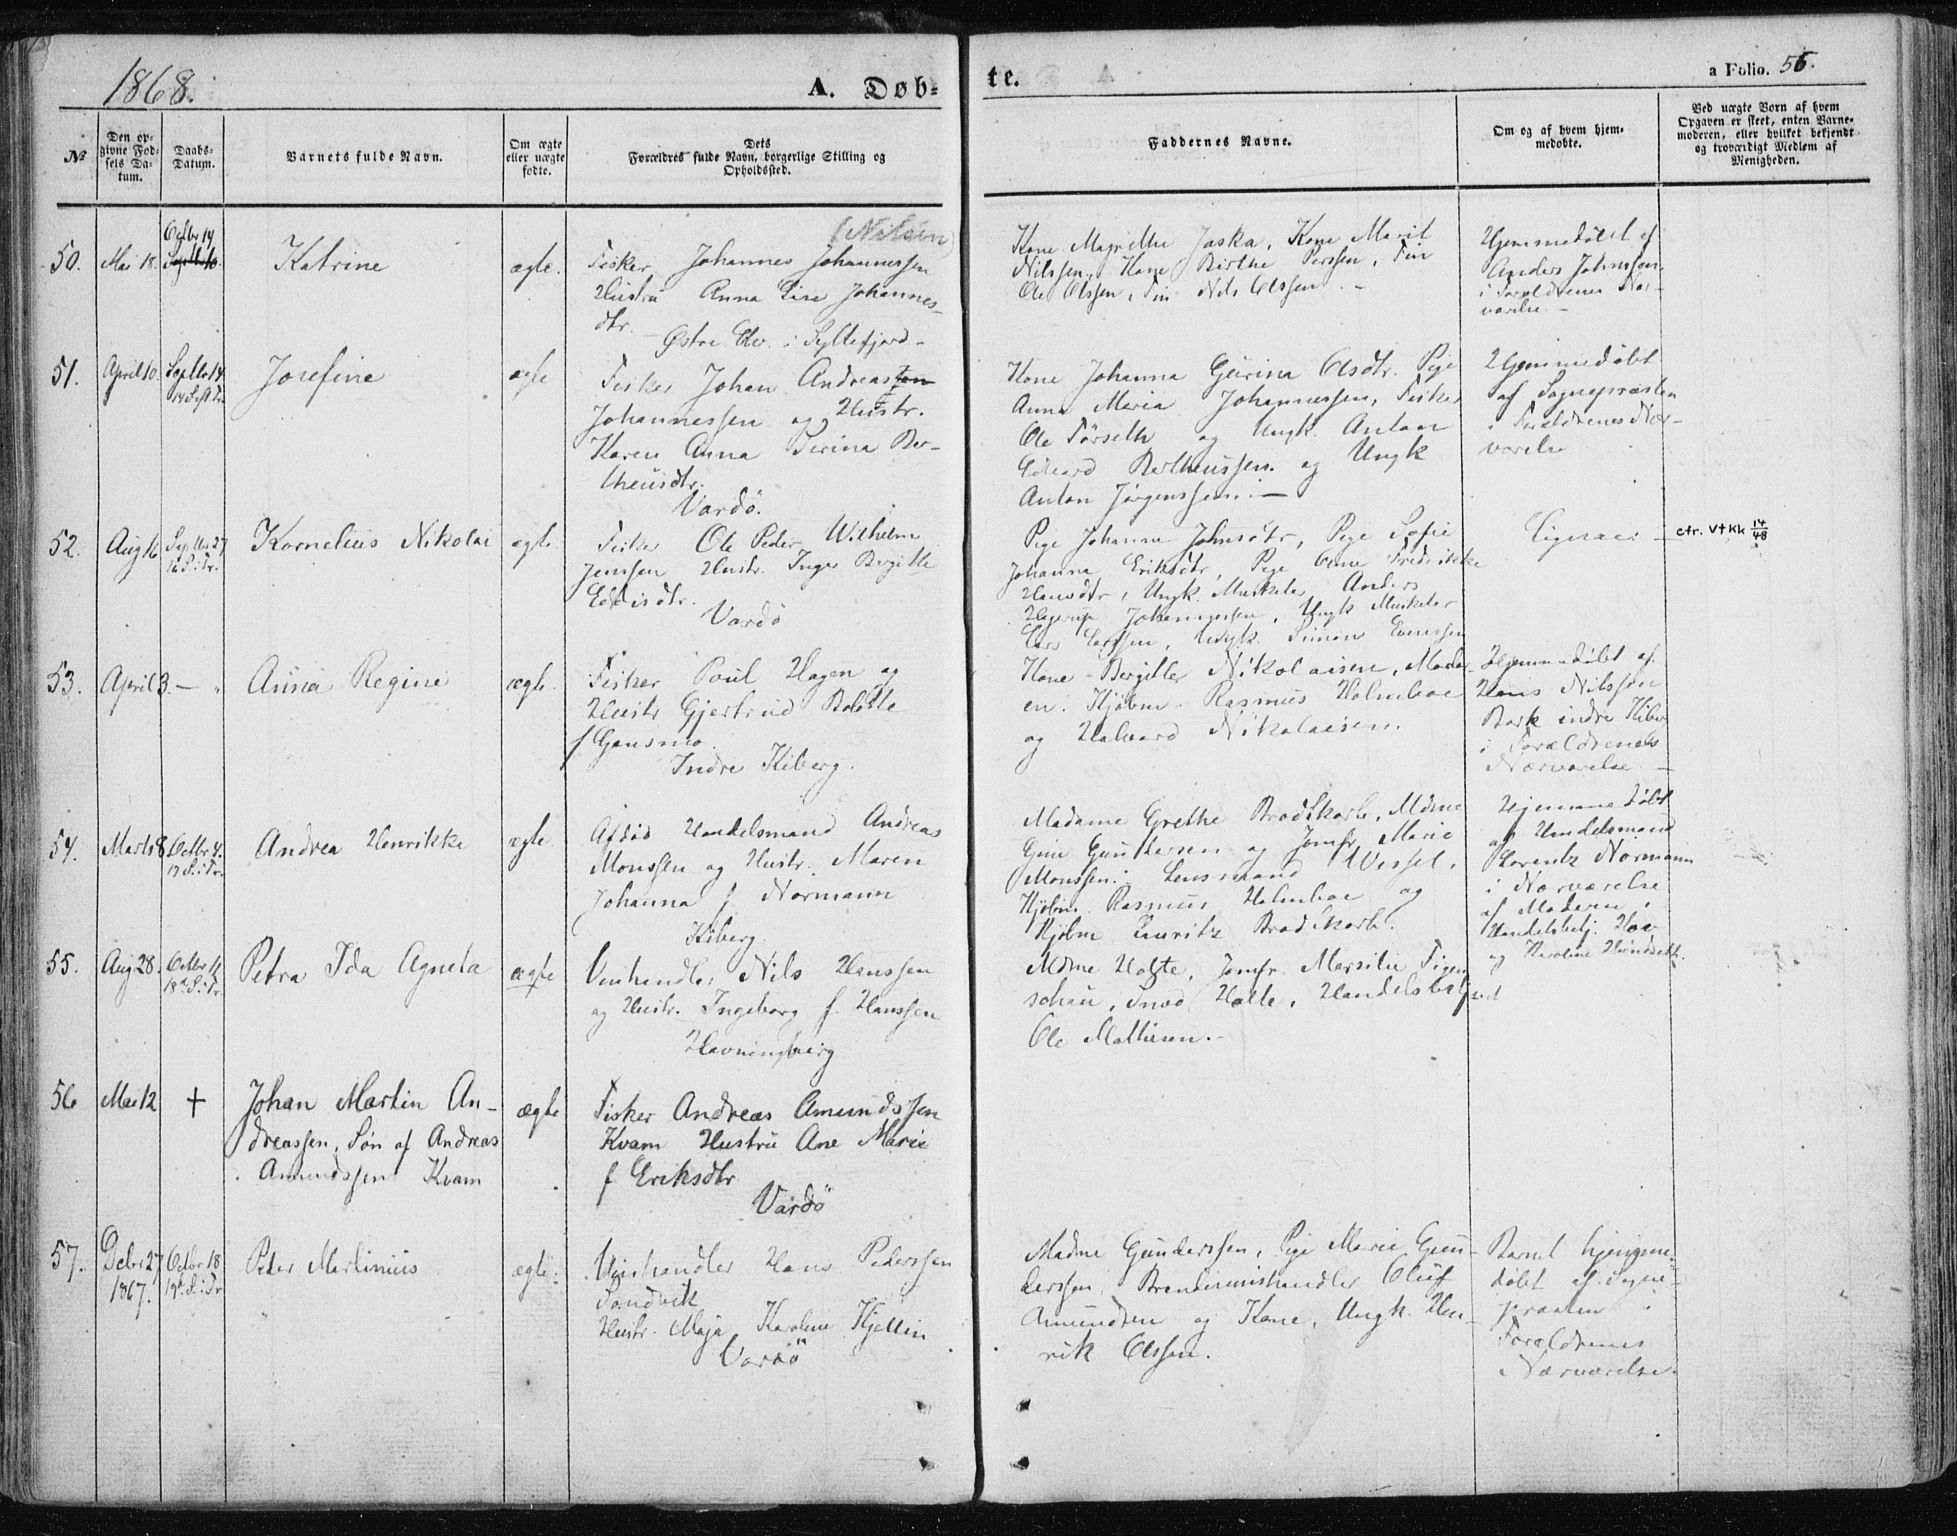 1868.
A. Døb-
te.
a Folio. 56.
№
Den op-
givne Fød-
sels Da-
tum.
Daabs-
Datum.
Barnets fulde Navn.
Om ægte
eller uægte
fødte.
Dets
Forældres fulde Navn, borgerlige Stilling og
Opholdssted.
Faddernes Navne.
Om og af hvem hjem-
medøbte.
Ved uægte Børn af hvem
Opgaven er skeet, enten Barne-
moderen, eller hvilket bekjendt
og troværdigt Medlem af
Menigheden.
50.
Mai 18.
Octbr 14
Katrine
ægte.
(Nilsen)
Fisker Johannes Johannessen
Hustru Anna Lise Johannes-
dtr.
Østre Elv. i Syltefjord
Kone Magrethe Jaska, Kone Marit
Nilssen, Kone Birthe Perssen, Fin
Ole Olssen, Fin Nils Olssen
Hjemmedøbt af
Anders Johnssen
i Forældrenes Nær-
værelse
51.
April 10.
Septbr 14
14 S. e. Tr.
Josefine
ægte
Fisker Johan Andreassen
Johannessen og Hustr.
Karen Anna Serina Ber-
theusdtr.
Vardö.
Kone Johanna Gurina Olsdtr. Pige
Anna Maria Johannessen, Fisker
Ole Törseth og Ungk. Anton
Edvard Bertheussen og Ungk
Anton Jörgenssen
Hjemmedøbt
af Sognepræsten
i Forældrenes Nær-
værelse
52.
Aug 16
Septbr 27
16 S. i. Tr.
Kornelius Nikolai
ægte
Fisker Ole Peder Wilhelm
Jenssen Hustr. Inger Birgitte
Eddisdtr.
Vardö
Pige Johanna Johnsdtr, Pige Sofie
Johanna Eriksdtr, Pige Anne Fredrikke
Hansdtr, Ungk. Musketer Anders
Hagerup Johannessen, Ungk Musketer
Lars Larssen, Ungk. Simon Evenssen
cfr. V+Kk 14/48
53.
April 3.
— "
Anna Regine
ægte.
Fisker Poul Hagen og
Hustr Gjertrud Bolette
f Gausmo.
Indre Kiberg.
Kone Bergitte Nikolaisen, Mada-
en. Kjøbm. Rasmus Holmboe
og Halvard Nikolaisen.
Hjemmedøbt af.
Hans Nilssen
Bark indre Kiber
i Forældrenes
Nærværelse.
54.
Marts 8
Octbr 4.
17 S. i. Tr.
Andrea Henrikke
ægte
Afdød Handelsmand Andreas
Monssen og Hustr. Maren
Johanna f. Normann
Kiberg.
Madame Grethe Brodtkorb, Mdme
Gine Gundersen og Jomfr Marie
Monssen. Lensmand Wessel.
Kjøbm. Rasmus Holmboe og
Kjøbm Lauritz Brodtkorb.
Hjemmedøbt
af Handelsmand
Lorentz Normann
i Nærværelse
af Moderen,
Handelsbetj.
og Karoline
55.
Aug 28.
Octbr 11
18 S. i. Tr.
Petra Ida Agneta
ægte
Vinhandler Nils Hanssen
og Hustr. Ingeborg f. Hanssen
Havningberg
Mdme Holte, Jomfr. Marsilie Figen-
schau, Holte, Handelsbetjent
Ole Mathisen.
56
Mai 12
+
Johan Martin An-
dreassen. Søn af Andreas
Amundssen Kvam
ægte
Fisker Andreas Amundssen
Kvam Hustru Ane Marie
f Eriksdtr
Vardö
57.
Debr 27
1867.
Octbr 18
19 S. i. Tr
Peter Martinius
ægte.
Vinhandler Hans Pederssen
Sandvik
Hustr. Maja Karoline Kjellin
Vardö
Madme Gunderssen, Pige Marie Gun-
derssen, Brændevinshandler Oluf
Amundsen og Kone, Ungk. Hen-
rik Olssen.
Barnet hjemme-
døbt af Sogne-
præsten i
Forældrenes
Nærværelse.